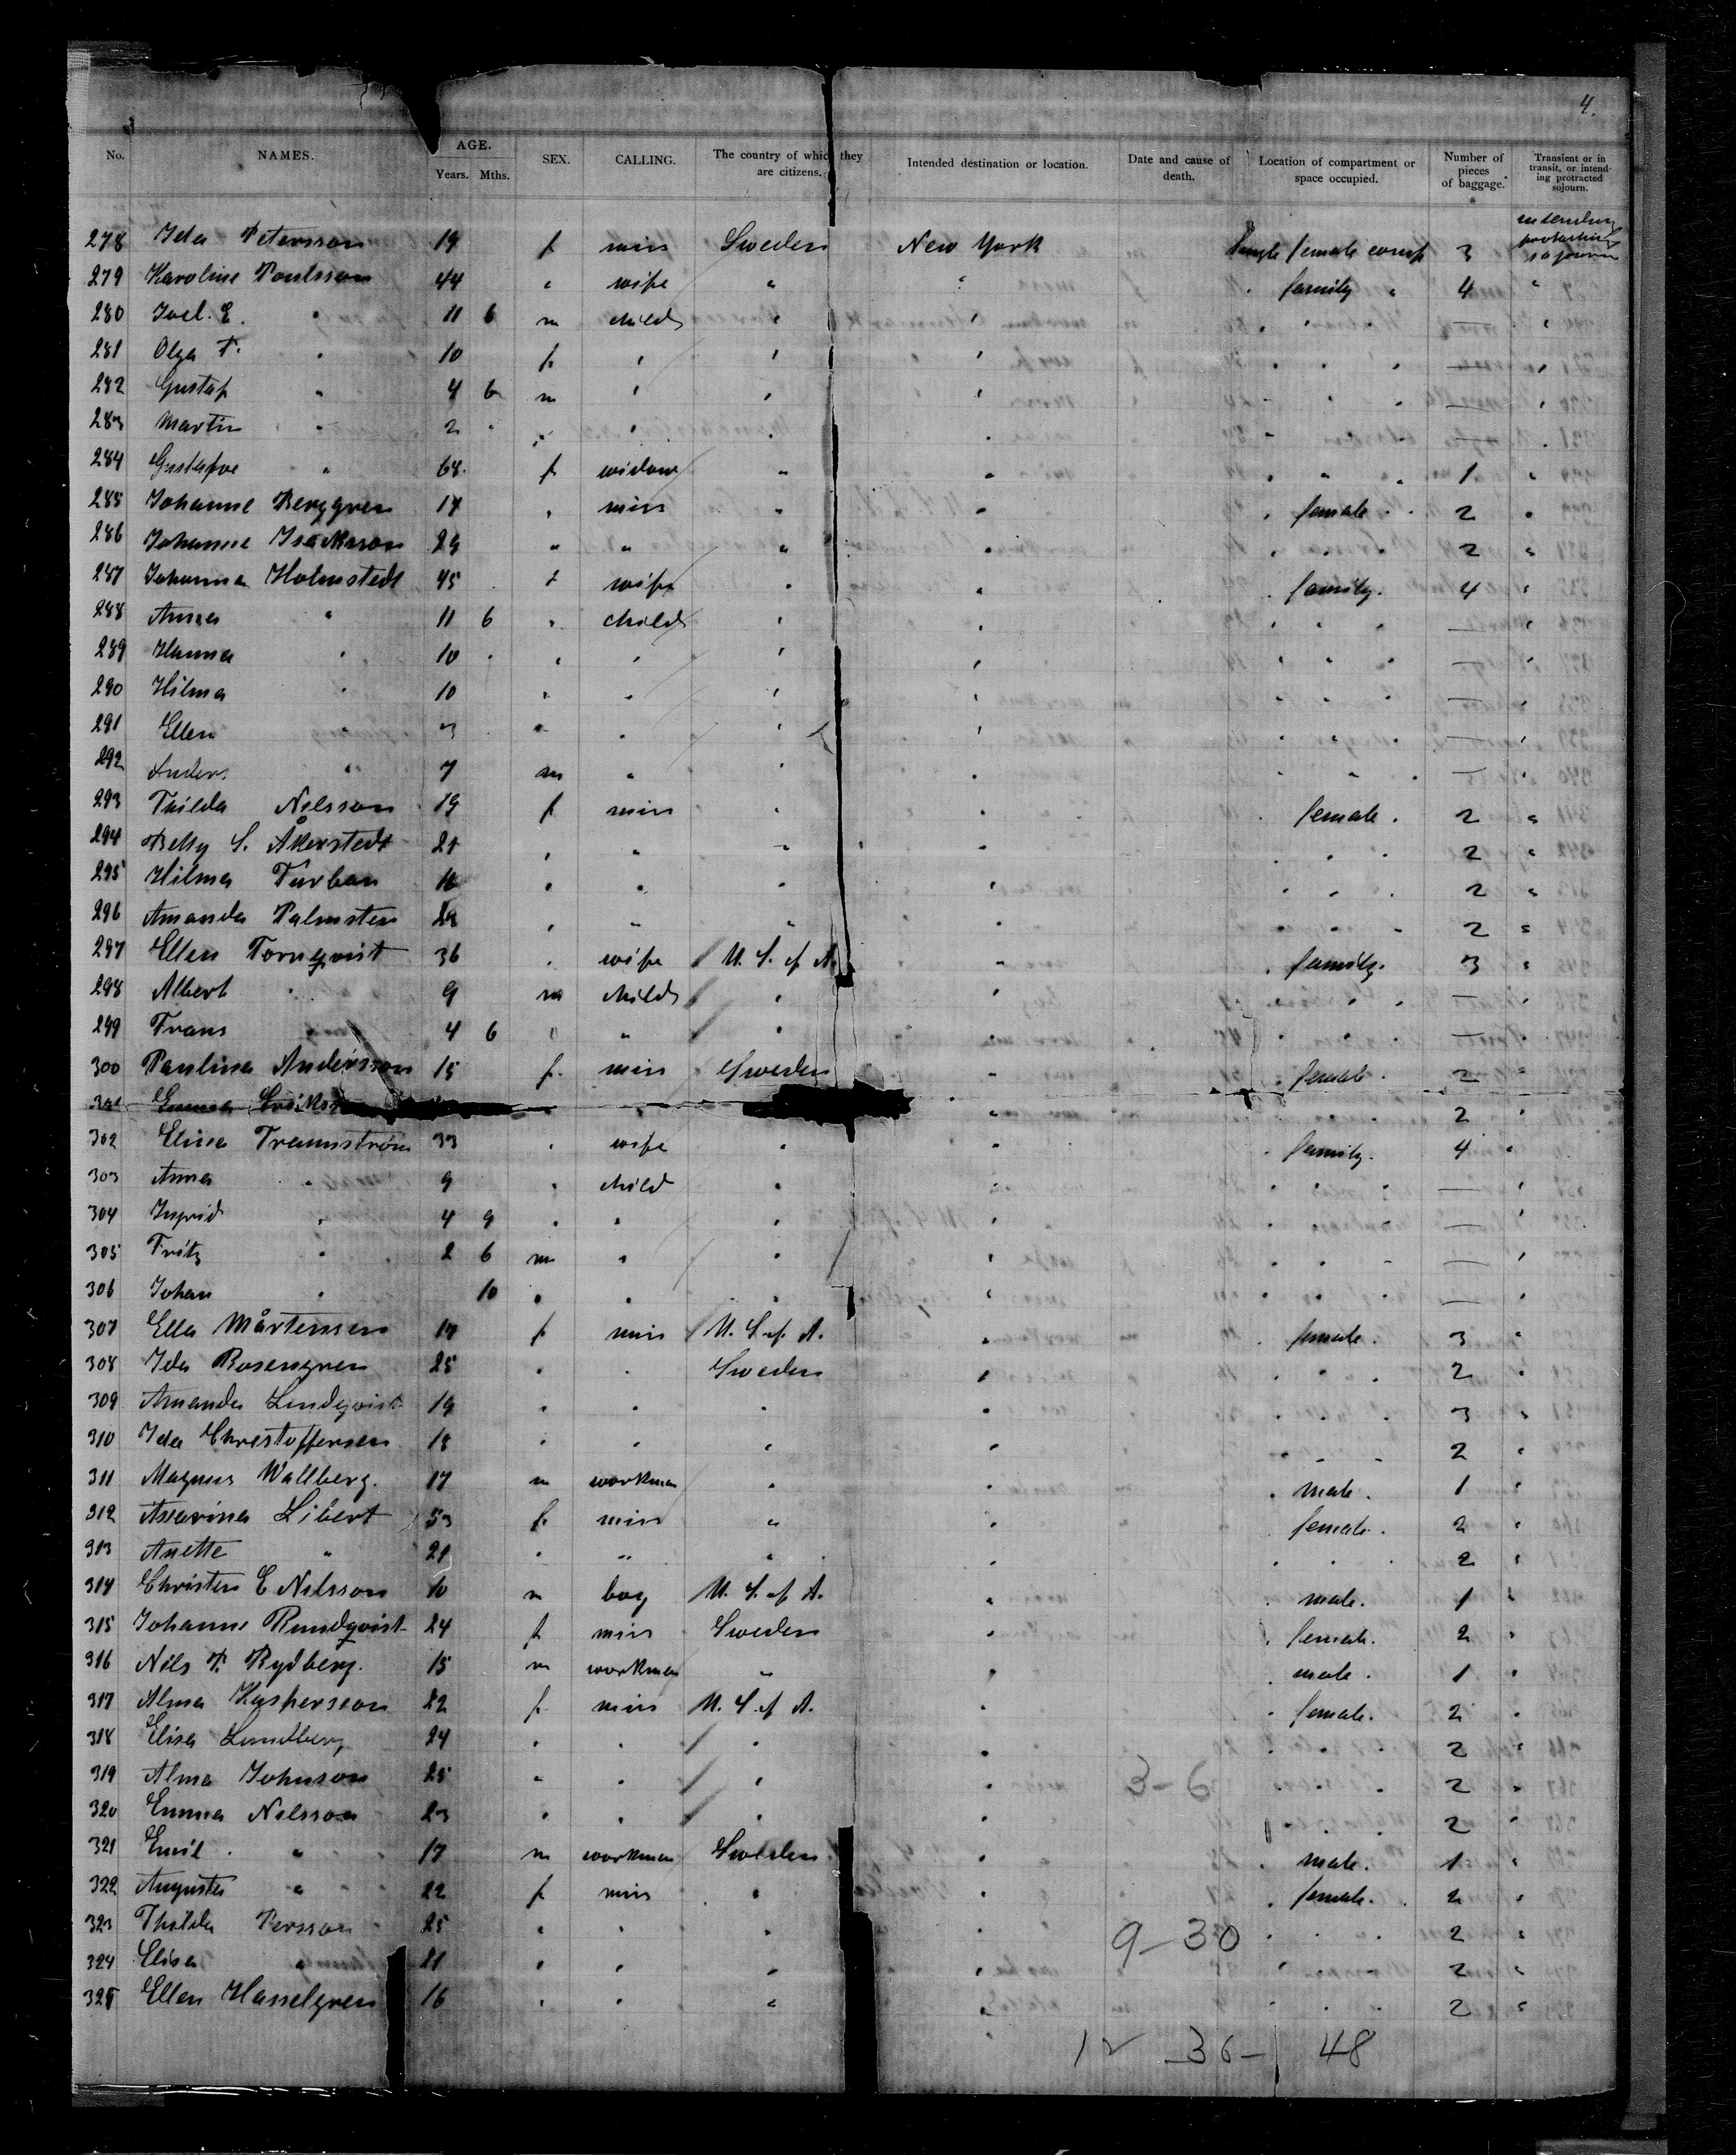 4.
No. NAMES. AGE. Years. Mths. SEX. CALLING. The country of which they are citizens. Intended destination or location. Date and cause of death. Location of compartment or space occupied. Number of pieces of baggage. Transient or in transit, or intending protracted sojourn.
278 Ida Petersson 19 f miss Sweden New York Single female comp 3 intending protracting sojourn
279 Karoline Poulsson 44 " wife " " " family " 4 "
280 Joel. E. " 11 6 m child " " " " " — "
281 Olga P. " 10 f " " " " " " — "
282 Gustaf " 4 6 m " " " " " " — "
283 Martin " 2 " " " " " " " — "
284 Gustafve " 68 f widow " " " " " 1 "
285 Johanne Berggren 17 " miss " " " female " 2 "
286 Johanne Isacksson 29 " " " " " " " 2 "
287 Johanna Holmstedt 45 f wife " " " family. 4 "
288 Anna " 11 6 " child " " " " " — "
289 Hanna " 10 " " " " " " " — "
290 Hilma " 10 " " " " " " " — "
291 Ellen " " " " " " " " — "
292 Anders " 7 m " " " " " " — "
293 Thilda Nilsson 19 f miss " " " female. 2 "
294 Betty S. Åkerstedt 21 " " " " " " " 2 "
295 Hilma Turban 16 " " " " " " " 2 "
296 Amanda Palmsten " " " " " " " 2 "
297 Ellen Tornqvist 36 " wife U. S. of A. " " family. 3 "
298 Albert " 9 m child " " " " " — "
299 Frans " 4 6 " " " " " " " — "
300 Paulina Andersson 15 f miss Sweden " " female. 2 "
301 Emma " " " 2 "
302 Elina Tramström 33 " wife " " " family. 4 "
303 Anna " 9 " child " " " " " — "
304 Ingrid " 4 9 " " " " " " " — "
305 Fritz " 2 6 m " " " " " " — "
306 Johan " 10 " " " " " " " — "
307 Ella Mårtensen 17 f miss U. S. of. A. " " female. 3 "
308 Ida Rosengren 25 " " Sweden " " " " 2 "
309 Amanda Lindqvist 19 " " " " " " " 3 "
310 Ida Christoffersen 18 " " " " " " " 2 "
311 Magnus Wallberg. 17 m workman " " " male. 1 "
312 Asarina Libert 53 f miss " " " female. 2 "
313 Anette " 21 " " " " " " " 2 "
314 Christen C Nilsson 10 m boy U. S. of A. " " male. 1 "
315 Johanne Rundqvist 24 f miss Sweden " " female. 2 "
316 Nils P. Rydberg. 15 m workman " " male. 1 "
317 Alma Kasperson 22 f miss U. S. of A. " " female. 2 "
318 Elisa Lundberg 24 " " " " " " " 2 "
319 Alma Johnson 25 " " " " 3-6 " " " 2 "
320 Emma Nilsson 23 " " " " " " " 2 "
321 Emil " 17 m workman Sweden " " male. 1 "
322 Augusta " 22 f miss " " " female. 2 "
323 Thilda Persson 25 " " " " 9-30 " " " 2 "
324 Elisa " 21 " " " " " " " 2 "
325 Ellen Hasselgren 16 " " " " " " " 2 "
12 -36- 48